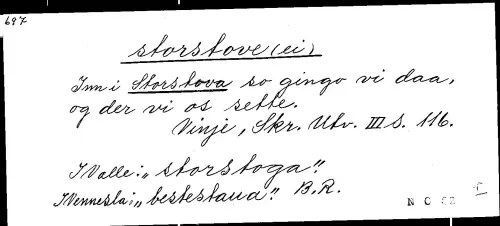 697
storstove (ei)
Inn i Storstova so gingo vi daa,
og der vi os sette.
Vinje, Skr. Utv. III s. 116.
I Valle: "storstoga".
I Vennesla: "bestestaua". B.R.
N O